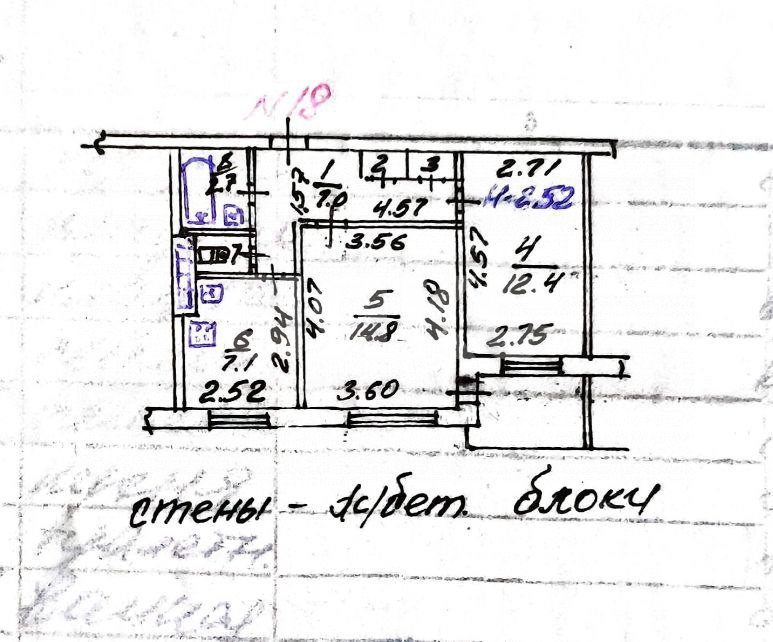 N 18
8
2.7
1.57
1
7.0
2
3
2.71
H-2.52
4.57
3.56
7
4.57
4
12.4
2.94
4.07
5
14.8
4.18
6
7.1
2.75
2.52
3.60
стены - ж/бет. блоки